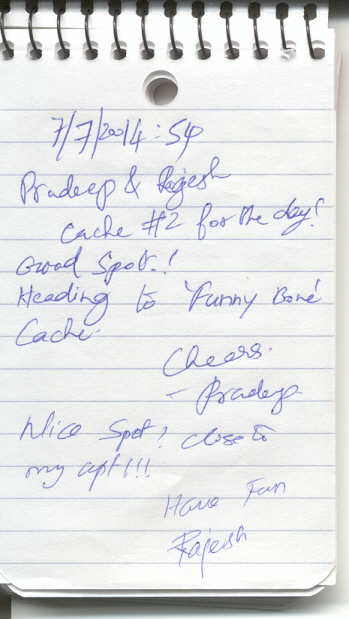 7/7/2001 4:54p
Pradeep & Rajesh
Cache #2 for the day!
Good Spot.!
Heading to 'Funny Bone'
Cache.
Cheers.
- Pradeep
Nice Spot! close to
my apt!!!
Have Fun
Rajesh